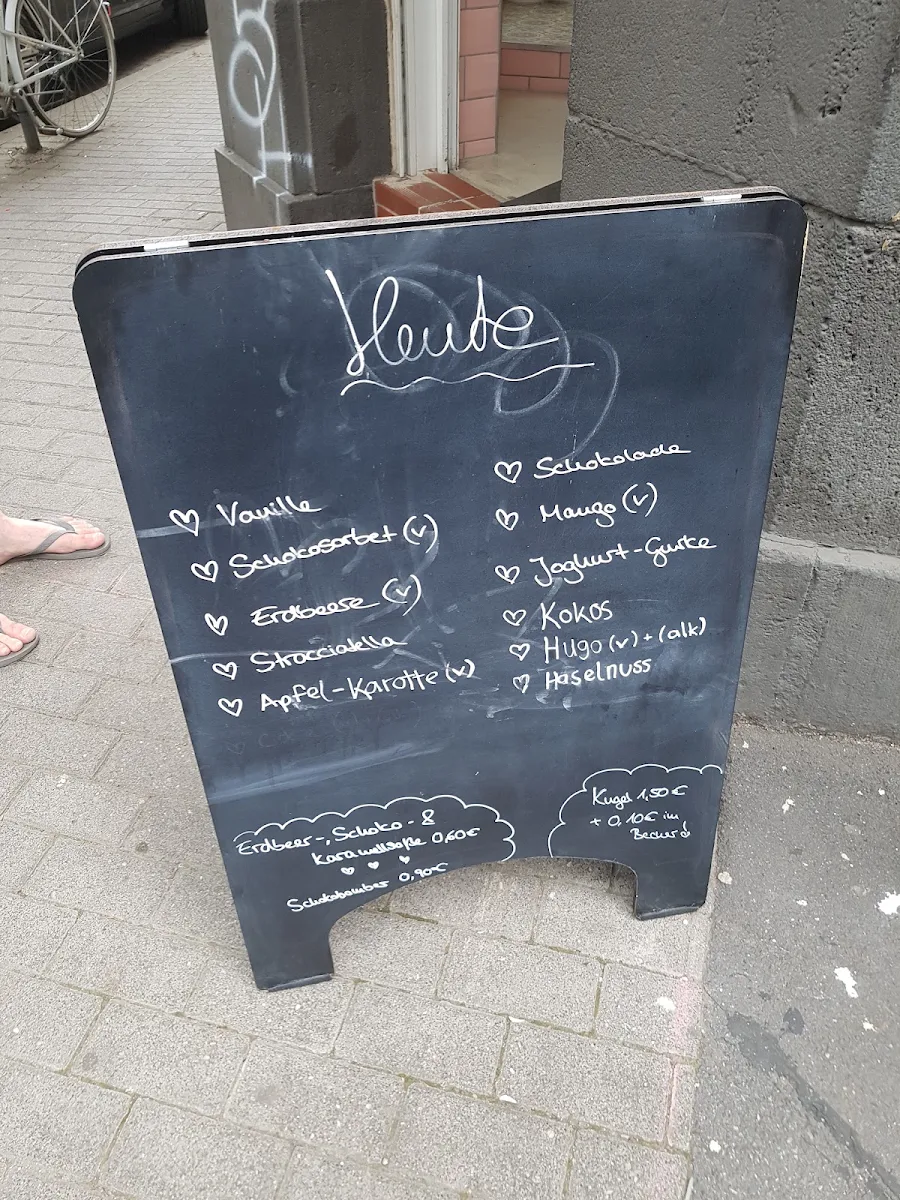 Heute
Vanille
Schokosorbet (v)
Erdbeere (v)
Stracciatella
Apfel-Karotte (v)
Schokolade
Mango (v)
Joghurt-Gurke
Kokos
Hugo (v) + (alk)
Haselnuss
Erdbeer-, Schoko- &
Karamellsoße 0,60€
Schokobomber 0,90€
Kugel 1,50€
+ 0,10€ im
Becher